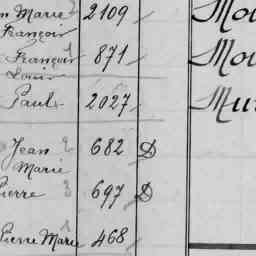 Marie 2109 Mo
François
François 871 Mo
Louis
Paul 2027 Mu
Jean 2 682 D
Marie
Pierre 3 697 D
Pierre Marie 1 468